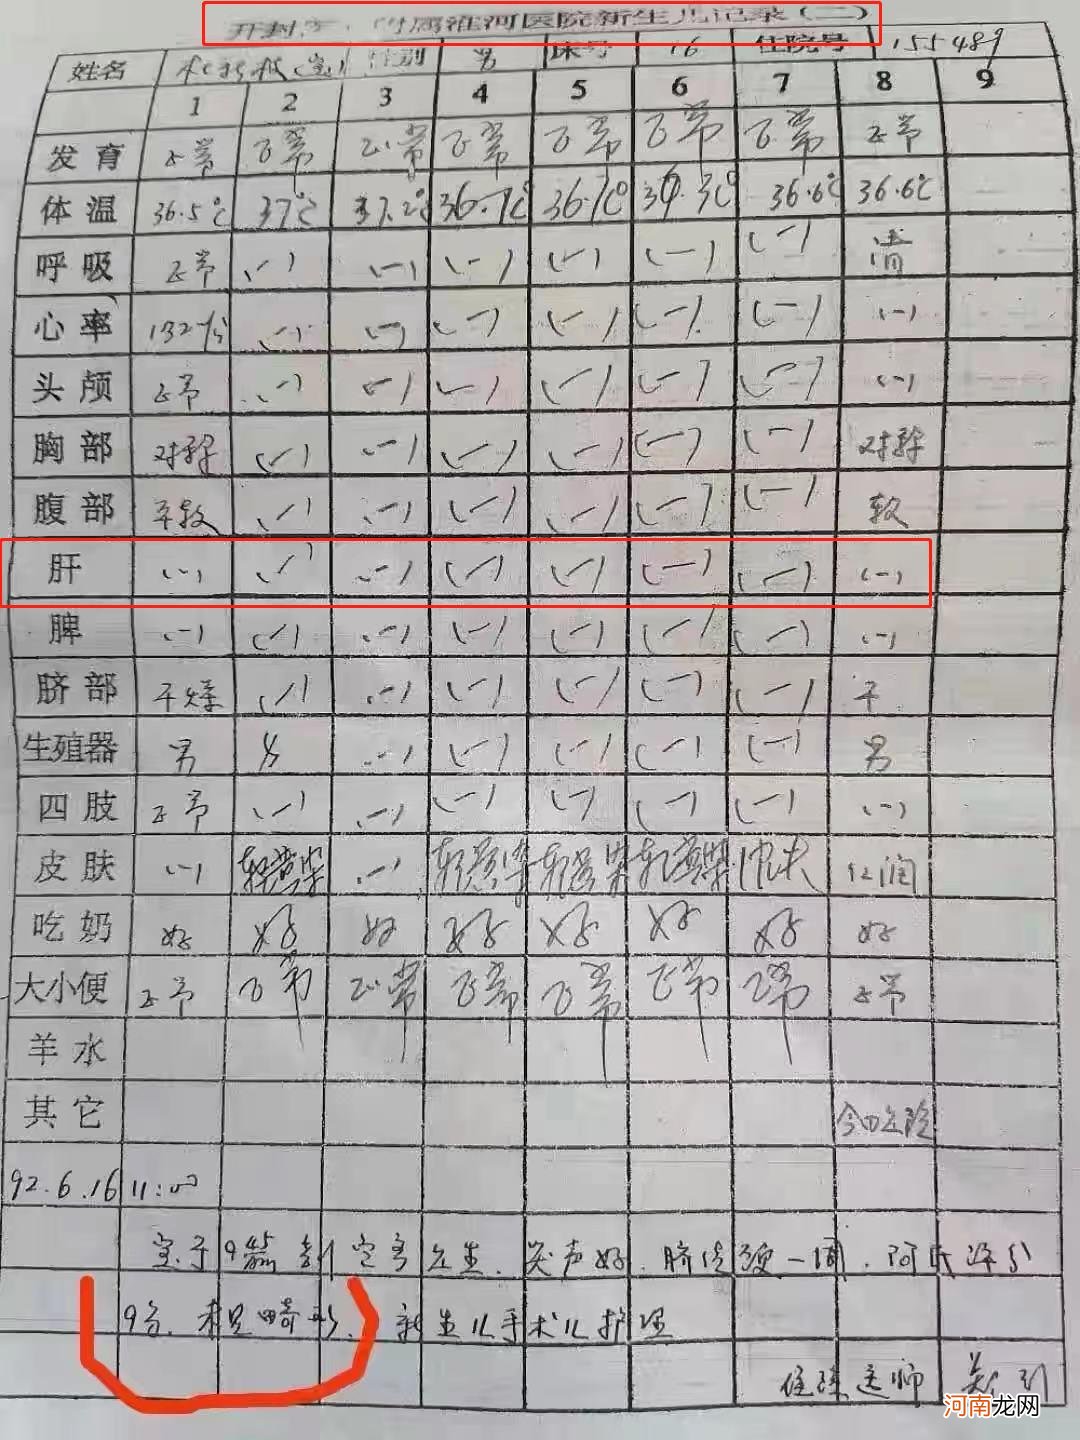 开封 附属淮河医院新生儿记录(二)
姓名 (宝) 性别 男 床号 16 住院号 155489
1 2 3 4 5 6 7 8 9
发育 正常 正常 正常 正常 正常 正常 正常 正常
体温 36.5℃ 37℃ 37.2℃ 36.7℃ 36.7℃ 36.3℃ 36.6℃ 36.6℃
呼吸 正常 (一) (一) (一) (一) (一) (一) 清
心率 132次/分 (一) (一) (一) (一) (一) (一) (一)
头颅 正常 (一) (一) (一) (一) (一) (一) (一)
胸部 对称 (一) (一) (一) (一) (一) (一) 对称
腹部 平软 (一) (一) (一) (一) (一) (一) 软
肝 (一) (一) (一) (一) (一) (一) (一) (一)
脾 (一) (一) (一) (一) (一) (一) (一) (一)
脐部 干燥 (一) (一) (一) (一) (一) (一) 干
生殖器 男 男 (一) (一) (一) (一) (一) 男
四肢 正常 (一) (一) (一) (一) (一) (一) (一)
皮肤 (一) 轻黄染 (一) 轻黄染 轻黄染 轻黄染 红润
吃奶 好 好 好 好 好 好 好 好
大小便 正常 正常 正常 正常 正常 正常 正常 正常
羊水
其它 今日出院
92.6.16 11:00
宝于9 45 剖宫产出生.哭声好.脐 绕颈一周.阿氏评分
9分.未见畸形.新生儿手术儿护理
医师
河南龙网